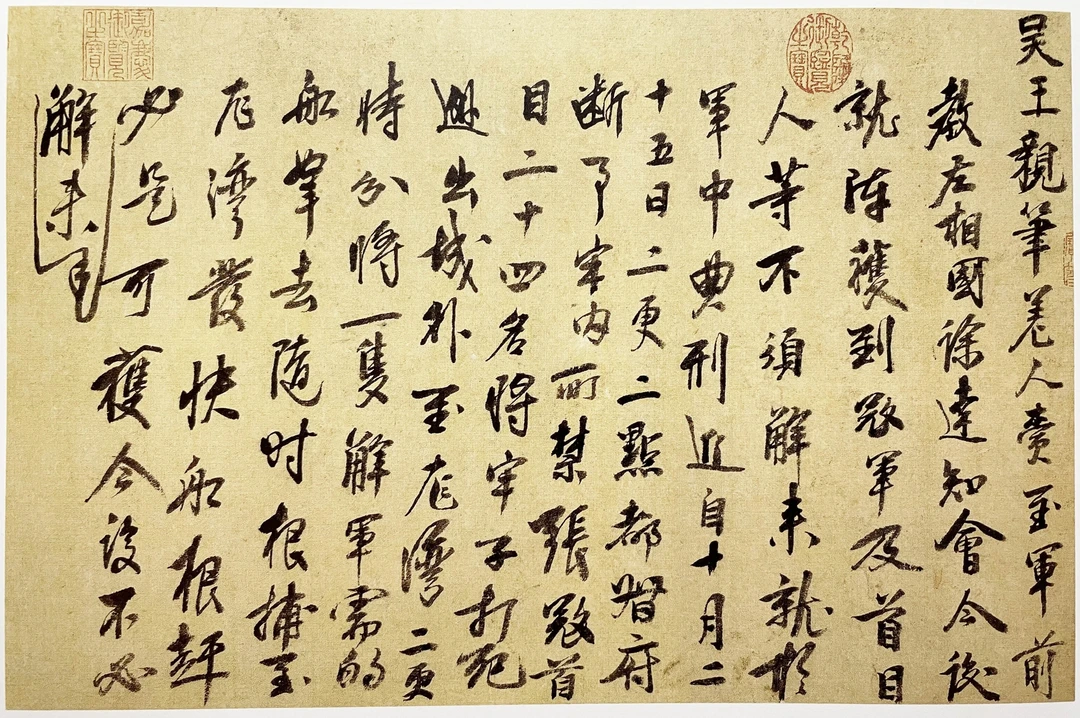 吴王親筆差人賫至軍前
教左相國徐達知會今後
就陣獲到寇軍及首目
人等不須解来就於
軍中典刑近自十月二
十五日二更二點都督府
断了牢内所禁張寇首
目二十四名將牢子打死
出城外至龙灣二更
時分將一隻解軍需的
船拏去隨时根捕至
龙灣發快船根赶
必是可獲今後不必
解来
乾隆御覽之寶
嘉慶御覽之寶